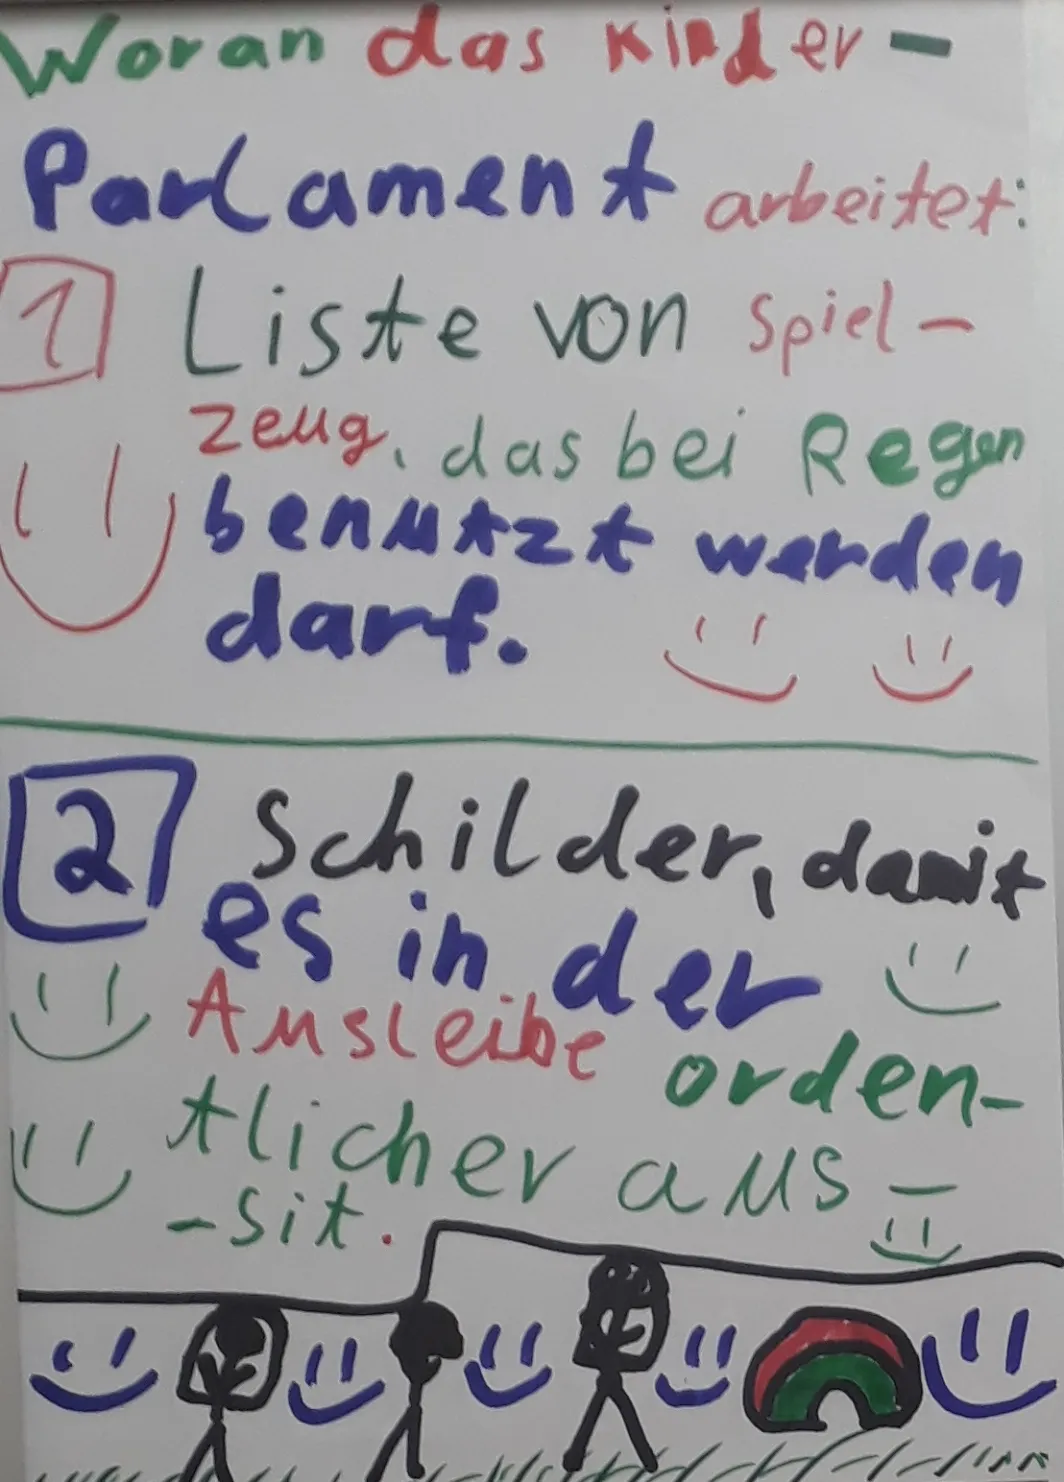 Woran das Kinder-
Parlament arbeitet:
1 Liste von Spiel-
zeug, das bei Regen
benutzt werden
darf.
2 Schilder, damit
es in der
Ausleihe orden-
tlicher aus-
-sit.